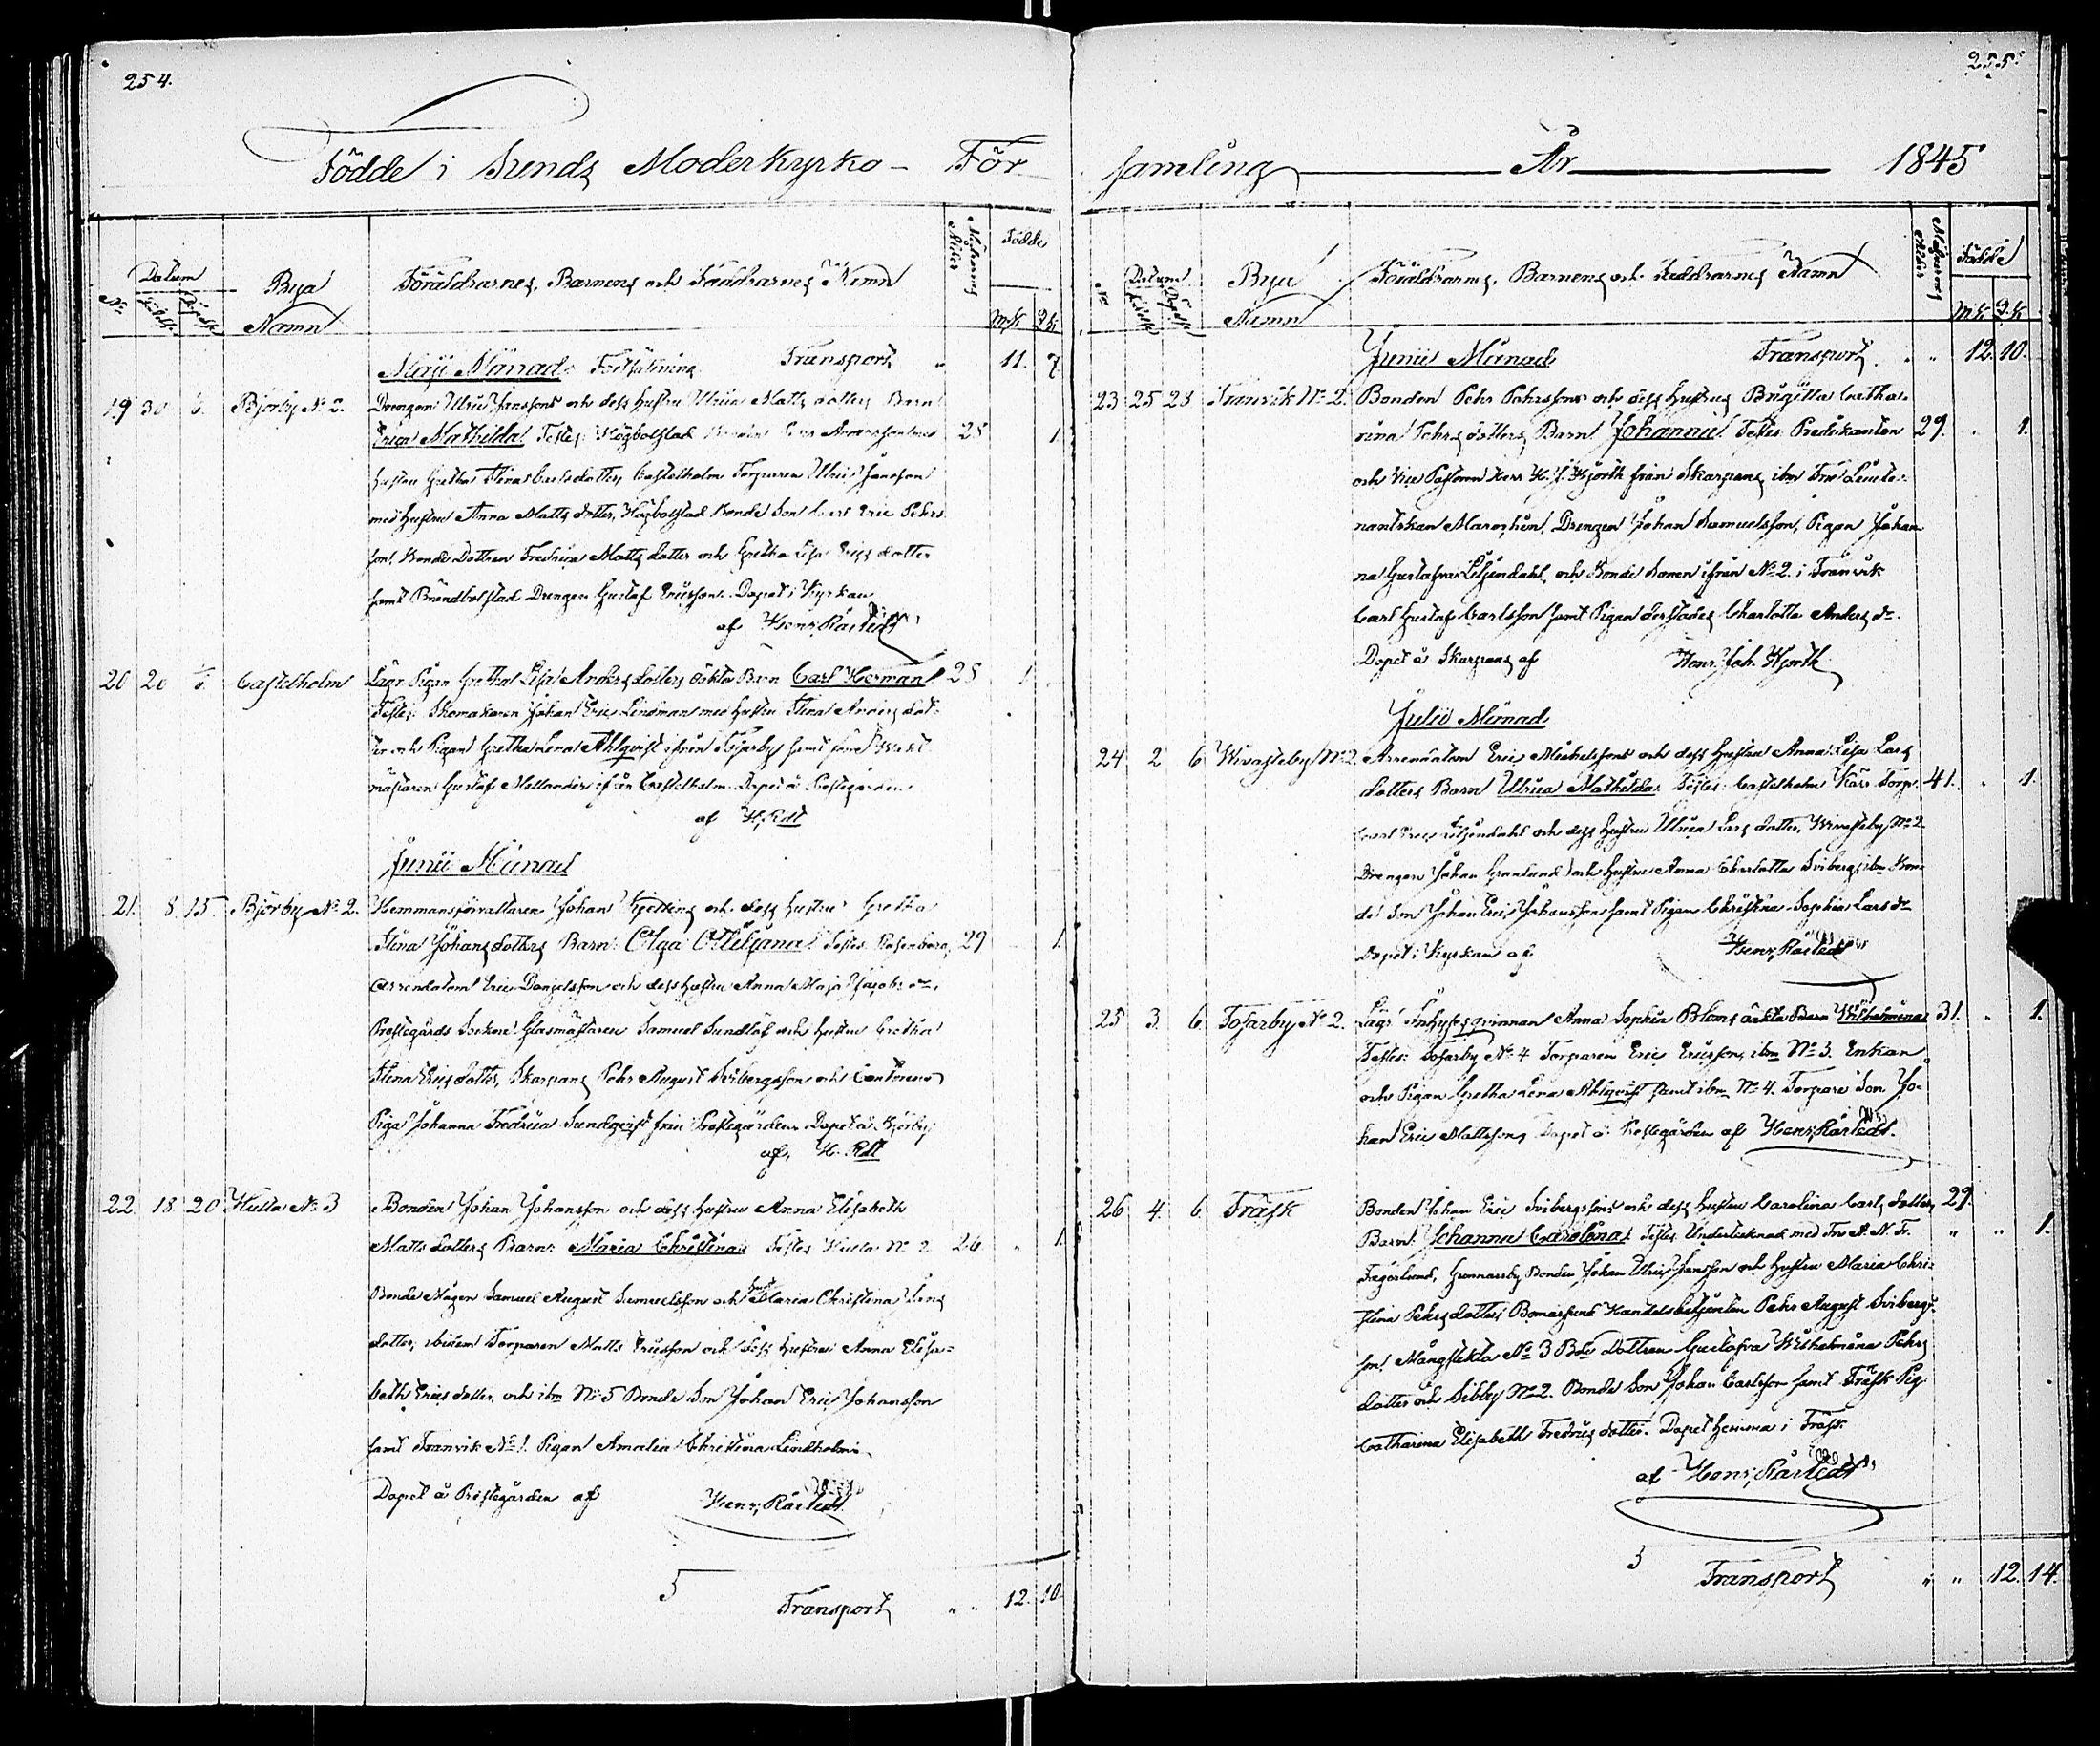 254.
Födde i Sunds Moderkyrko- För
No
Datum
Födelse
Döpelse
Bya
Namn
Föräldrarnes, Barnens och Faddrarnes Namn
Modrarnes
Ålder
Födde
MK QK
Maji Månad. Fortsättning Transport " 11. 7
19 30 6. Björby No 2. Drengen Ulric Janssons och dess Hustru Ulrica Matts dotters Barn
Erica Mathilda Testes: Högbolstad Bonden Andersson med 28 1.
hustru Gretha Stina Carlsdotter, Castelholm Torparen Ulric Jansson
med Hustru Anna Matts dotter, Högbolstad Bonde Son Carl Eric Pehrs
son, Bonde Dottren Fredrica Matts dotter och Gretha Lisa Erics dotter
samt Brändbolstad Drengen Gustaf Ericsson. Döpt i Kyrkan
af Henr. Råstedt
20 20 Castelholm Lägr Pigan Gretha Lisa Anders dotters oäkta Barn Carl Herman 28 1
Testes: Skomakaren Johan Eric Lindman med hustru Stina Anders dot-
ter och Pigan Gretha Lena Ahlqvist ifrån Tosarby samt förre Wakt-
mästaren Gustaf Mellander ifrån Castelholm. Döpt å Prestegården
af H. Rdt
Junii Månad
21. 8 15. Björby No 2. Hemmansförvaltaren Johan Kjelling och dess Hustru Gretha
Stina Johans dotters Barn: Olga Ottiliana Testes: Rosenberg, 29 1.
arrendatorn Eric Danjelsson och dess hustru Anna Maja Jacobs dr,
Prestegårds Glasmästaren Samuel Sundlöf och Hustru Gretha
Stina Erics dotter, Skarpans Pehr August Svibergsson och Contoirs
Piga Johanna Fredrica Sundqvist från Prestegården. Döpt å Björby
af, H. Rdt
22. 18. 20 Hulta No 3 Bonden Johan Johansson och dess hustru Anna Elisabeth
Matts dotters Barn: Maria Christina Testes Hulta No 2 26 " 1.
Bonde Mågen Samuel August Samuelsson och hust Maria Christina Jans
dotter, ibidem Torparen Matts Ericsson och dess hustru Anna Elisa-
beth Erics dotter, och ibm No 5 Bonde Son Johan Eric Johansson
samt Tranvik No 1. Pigan Amalia Christina Lindholm
Döpt å Prestegården af Henr. Råstedt
5
Transport " " 12. 10.
255.
samling År 1845
No
Datum
Födelse
Döpelse
Bya
Namn
Föräldrarnes, Barnens och Faddrarnes Namn
Modrarnes
Ålder
Födde
MK QK
Junii Månad Transport " 12. 10.
23 25 28 Tranvik No 2. Bonden Pehr Pehrssons och dess Hustrus Brigitta Catha-
rina Pehrs dotters Barn Johanna Testes Predikanten 29. " 1.
och Vice Pastorn Herr H. J. Hjorth från Skarpans, ibm Fru Leute-
nantskan Drengen Johan Samuelsson, Pigan Johan-
na Gustafva Liljendahl, och Bonde Sonen ifrån No 2. i Tranvik
Carl Gustaf Carlsson samt Pigan derstädes Charlotta Anders dr.
Döpt å Skarpans af Henr. Joh. Hjorth
Julii Månad
24 2 6 Wivasteby No 2 Arrendatorn Eric Michelssons och dess Hustru Anna Lisa Lars
dotters Barn Ulrica Mathilda. Testes: Castelholm Kärr Torp. 41. " 1.
Carl Eric Liljendahl och dess Hustru Ulrica Lars dotter, Wivasteby No 2
Drengen Johan Granlund och Hustru Anna Charlotta Sviberg, ibm Bon-
de Son Johan Eric Johansson samt Pigan Christina Sophia Lars dr
Döpt i Kyrkan af Henr. Råstedt
25 3. 6. Tosarby No 2. Lägr Inhyses qvinnan Anna Sophia Bloms oäkta Barn Wilhelmina 31. " 1.
Testes: Tosarby No 4 Torparen Eric Ericsson, ibm No 3. Enkan
och Pigan Gretha Lena Ahlqvist samt ibm No 4. Torpare Son Jo-
han Eric Mattsson, Döpt å Prestegården af Henr. Råstedt.
26 4. 6. Träsk Bonden Johan Eric Svibergssons och dess Hustru Carolina Carls dotters 29.
Barn Johanna Carolina Testes Undertecknad med Fru A. N. F.
" " 1.
Fagerlund, Gunnarsby Bonden Johan Ulric Jansson och Hustru Maria Chri-
stina Pehrs dotter, Bomarsund Handelsbetjenten Pehr August Svibergs-
son, Mångstekta No 3 Bde Dottren Gustafva Wilhelmina Pehrs
dotter och Sibby No 2. Bonde Son Johan Carlsson samt Träsk Pig.
Catharina Elisabeth Fredrics dotter. Döpt hemma i Träsk
af Henr. Råstedt
5
Transport " " 12. 14.